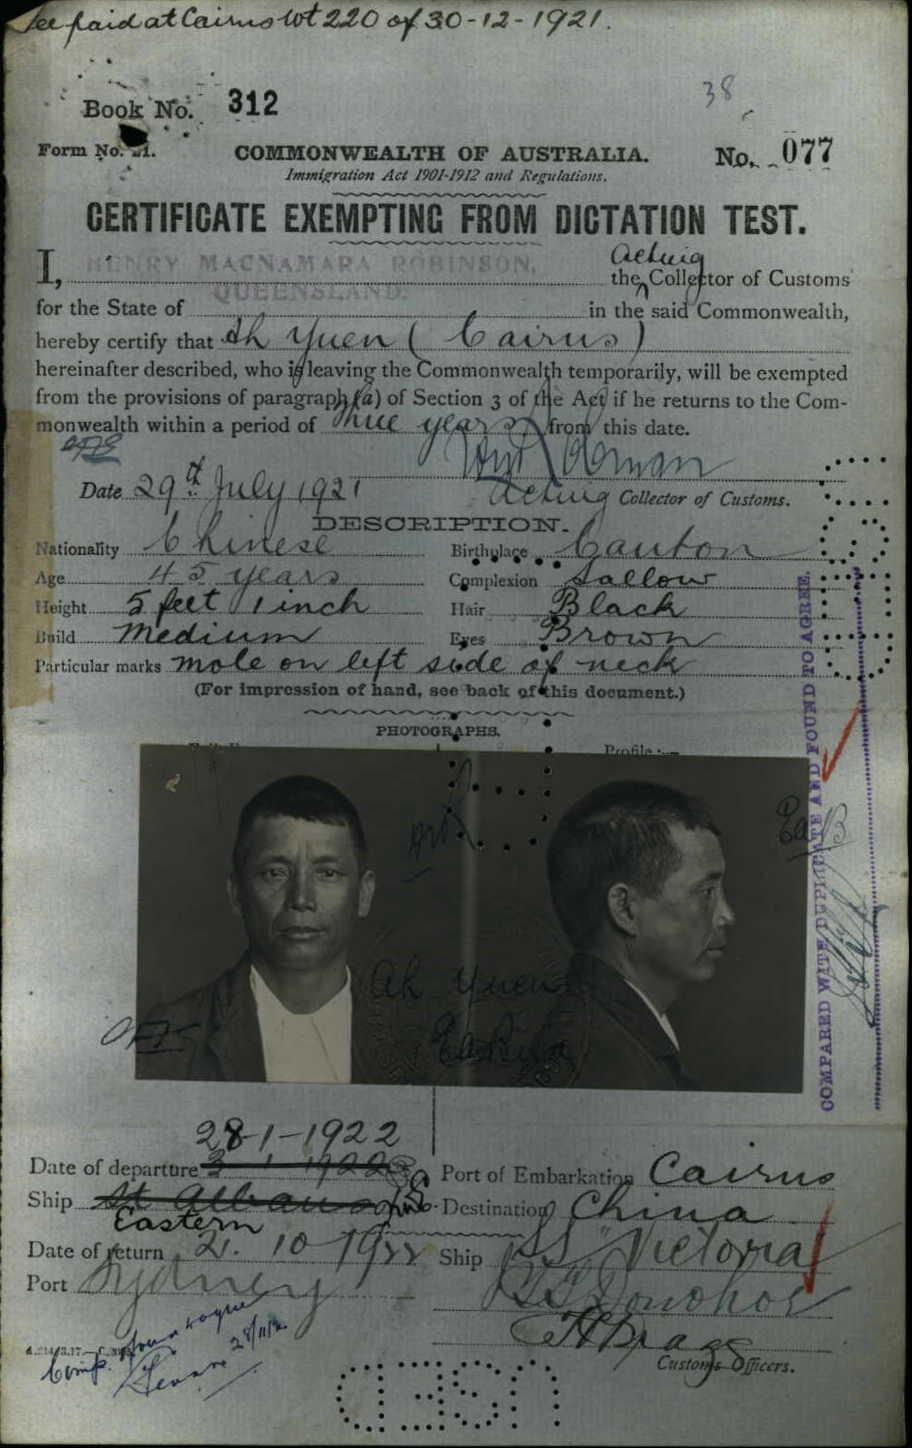 Fee paid at Cairns Wt 220 of 30-12-1921.
38
Book No. 312
Form No. 21.
COMMONWEALTH OF AUSTRALIA.
No. 077
Immigration Act 1901-1912 and Regulations.
CERTIFICATE EXEMPTING FROM DICTATION TEST.
I, HENRY MACNAMARA ROBINSON, the Acting Collector of Customs
QUEENSLAND.
for the State of in the said Commonwealth,
hereby certify that Ah Yuen (Cairns)
hereinafter described, who is leaving the Commonwealth temporarily, will be exempted
from the provisions of paragraph (a) of Section 3 of the Act if he returns to the Com-
monwealth within a period of Three years from this date.
Date 29th July 1921
Acting Collector of Customs.
DESCRIPTION.
Nationality Chinese Birthplace Canton
Age 45 years Complexion Sallow
Height 5 feet 1 inch Hair Black
Build Medium Eyes Brown
Particular marks mole on left side of neck
(For impression of hand, see back of this document.)
PHOTOGRAPHS.
Profile:—
COMPARED WITH DUPLICATE AND FOUND TO AGREE.
Ah Yuen
28-1-1922
Date of departure 3 1 1922 Port of Embarkation Cairns
Ship St Albans Destination China
Eastern
Date of return 21. 10 1922 Ship SS "Victoria
Port Sydney
Donohoe
28/11/2
Customs Officers.
USED